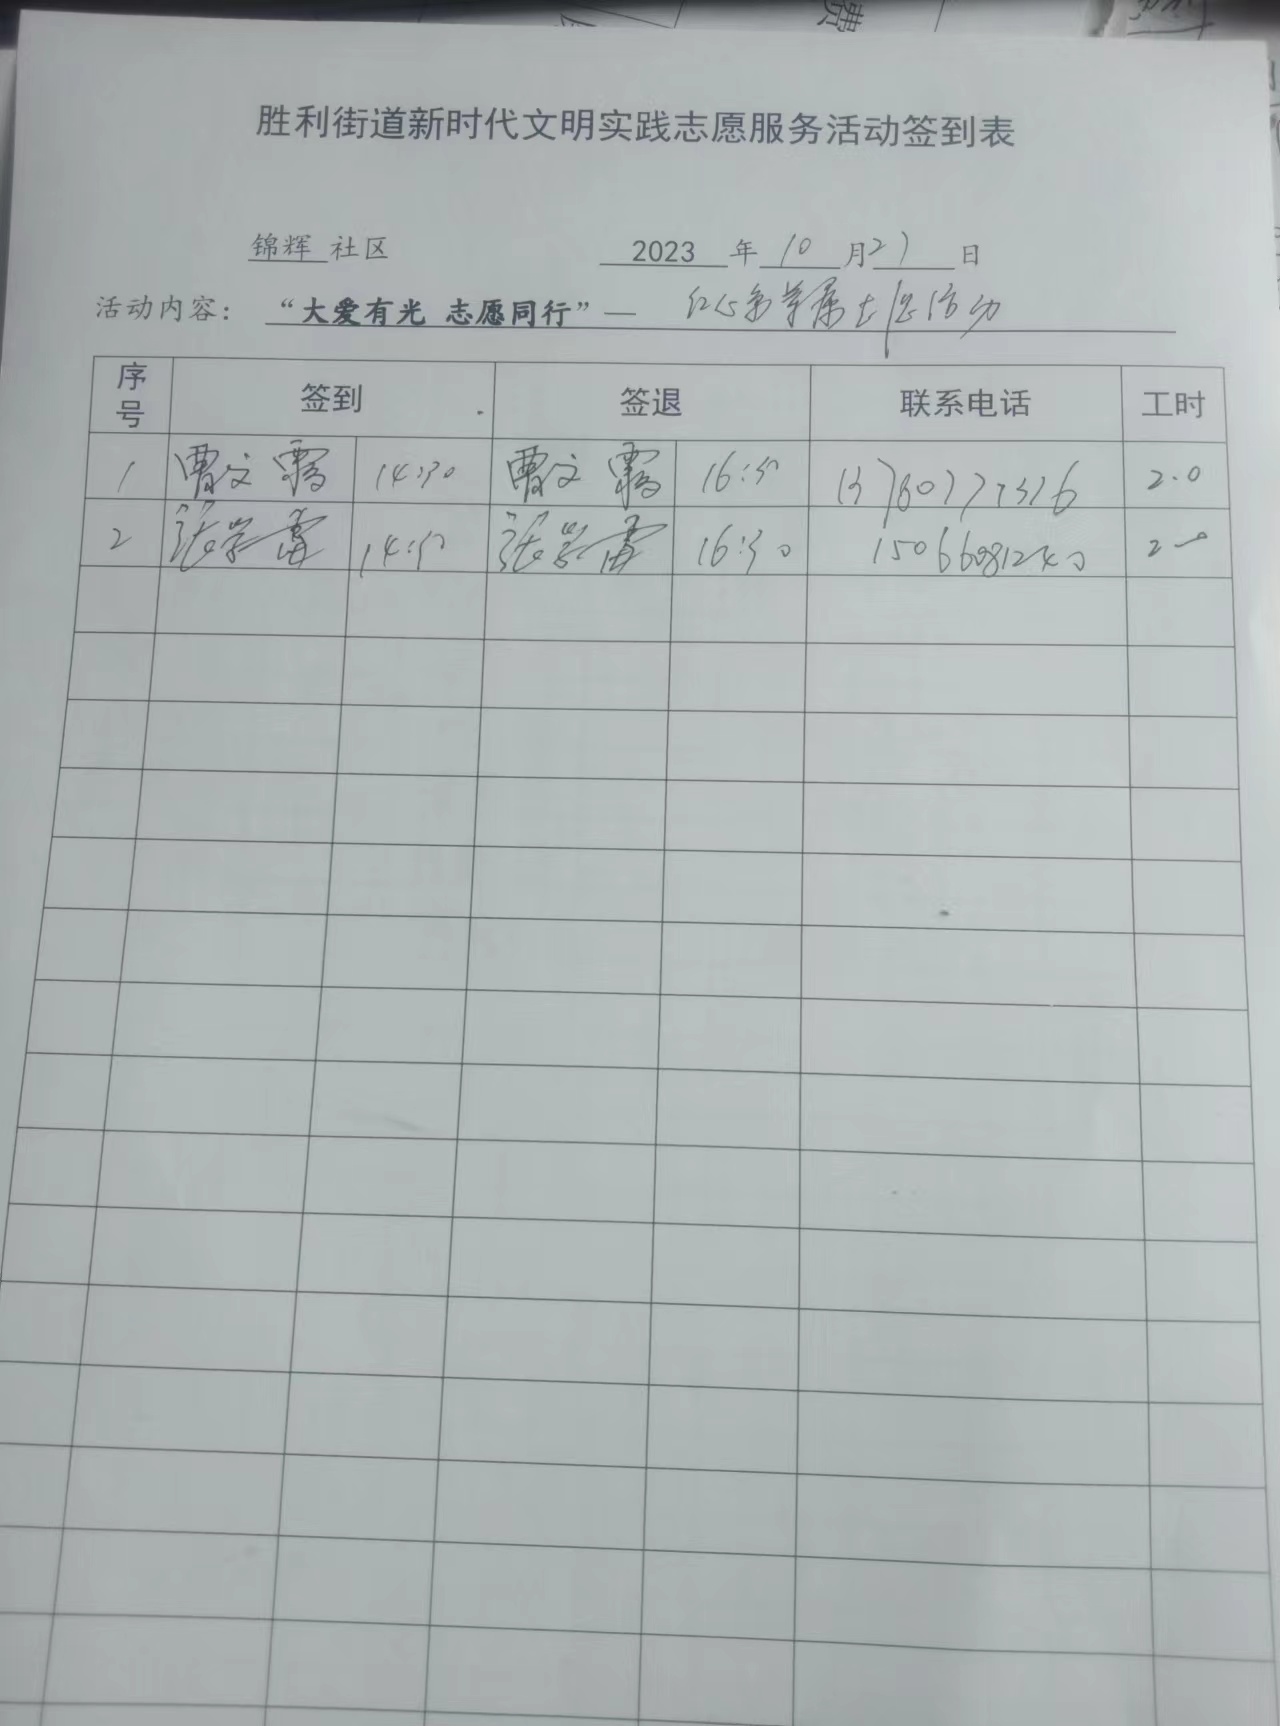 费
胜利街道新时代文明实践志愿服务活动签到表
锦辉 社区 2023 年 10 月 27 日
活动内容： “大爱有光 志愿同行”— 红心 活动
序号 签到 签退 联系电话 工时
1 曹文霭 14:30 曹文霭 16:30 2.0
2 张学雷 14:30 张学雷 16:30 15066081240 2.0